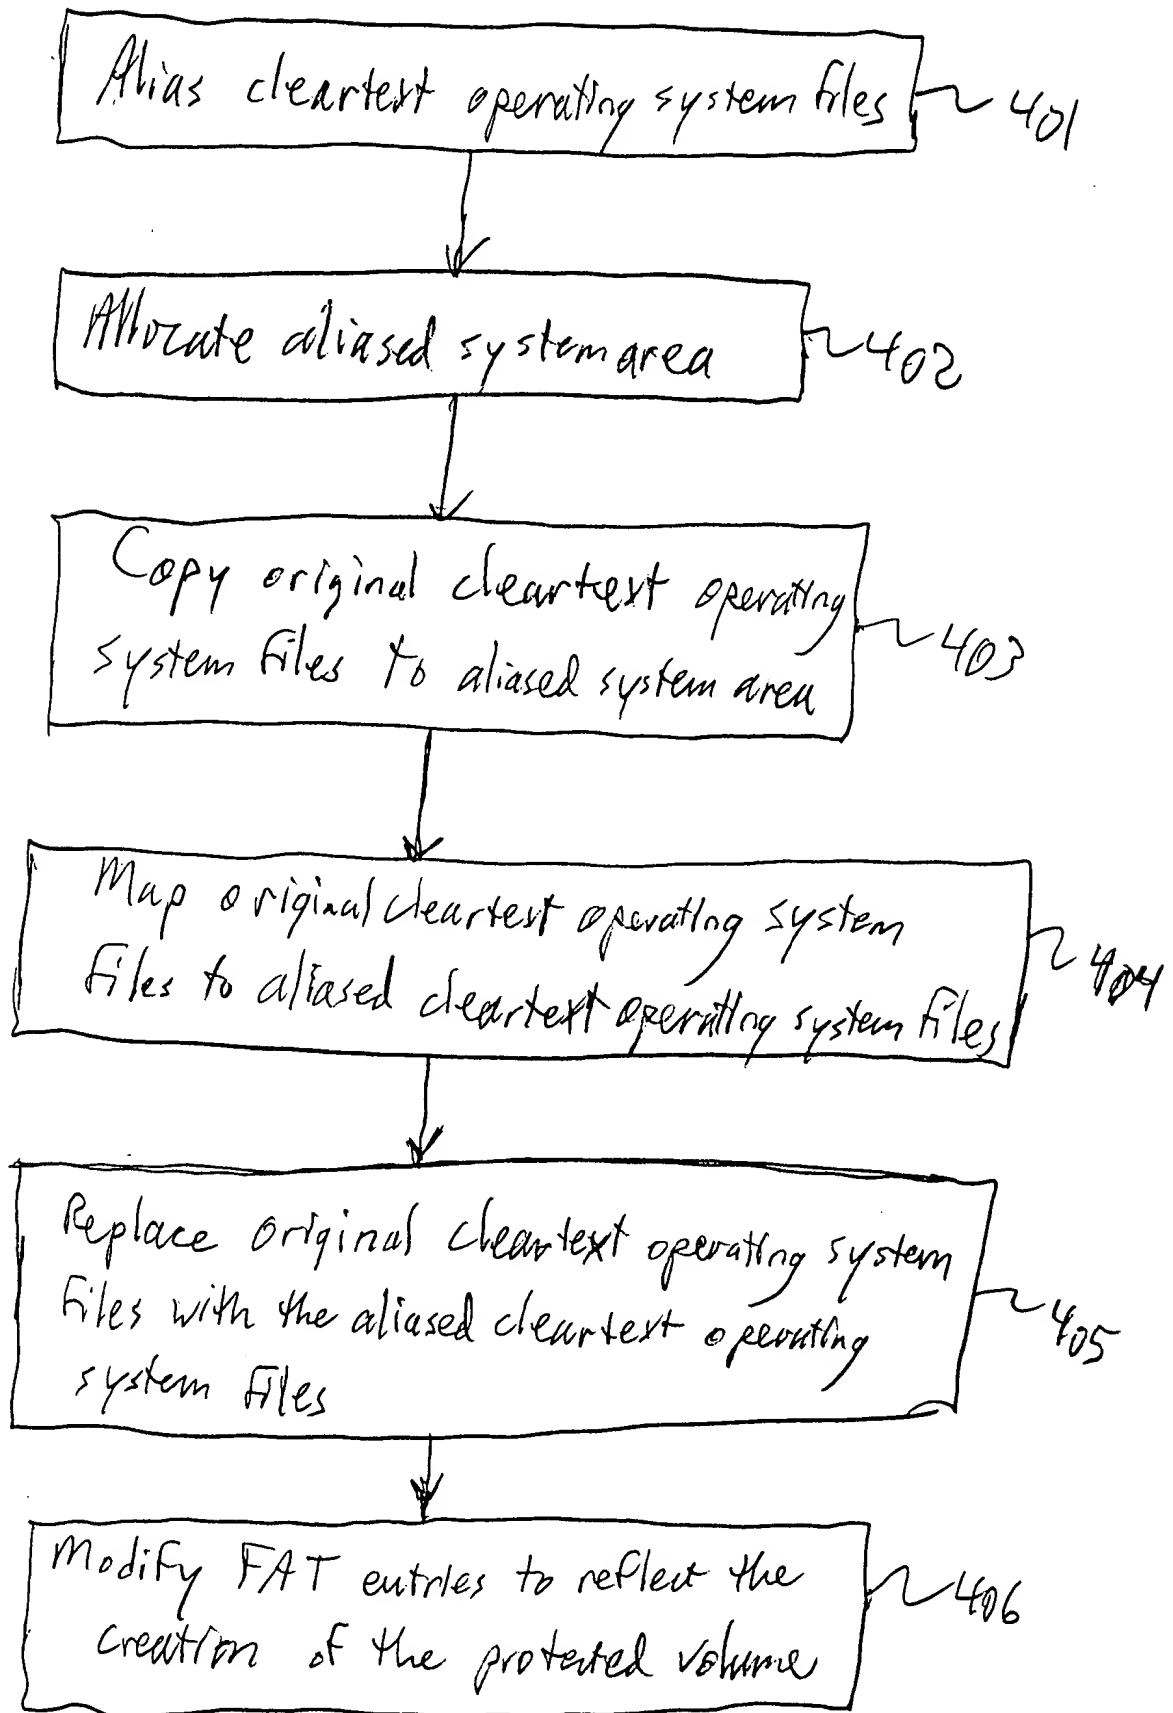 Alias cleartext operating system files
401
Allocate aliased system area
402
Copy original cleartext operating
system files to aliased system area
403
Map original cleartext operating system
files to aliased cleartext operating system files
404
Replace original cleartext operating system
files with the aliased cleartext operating
system files
405
Modify FAT entries to reflect the
creation of the protected volume
406